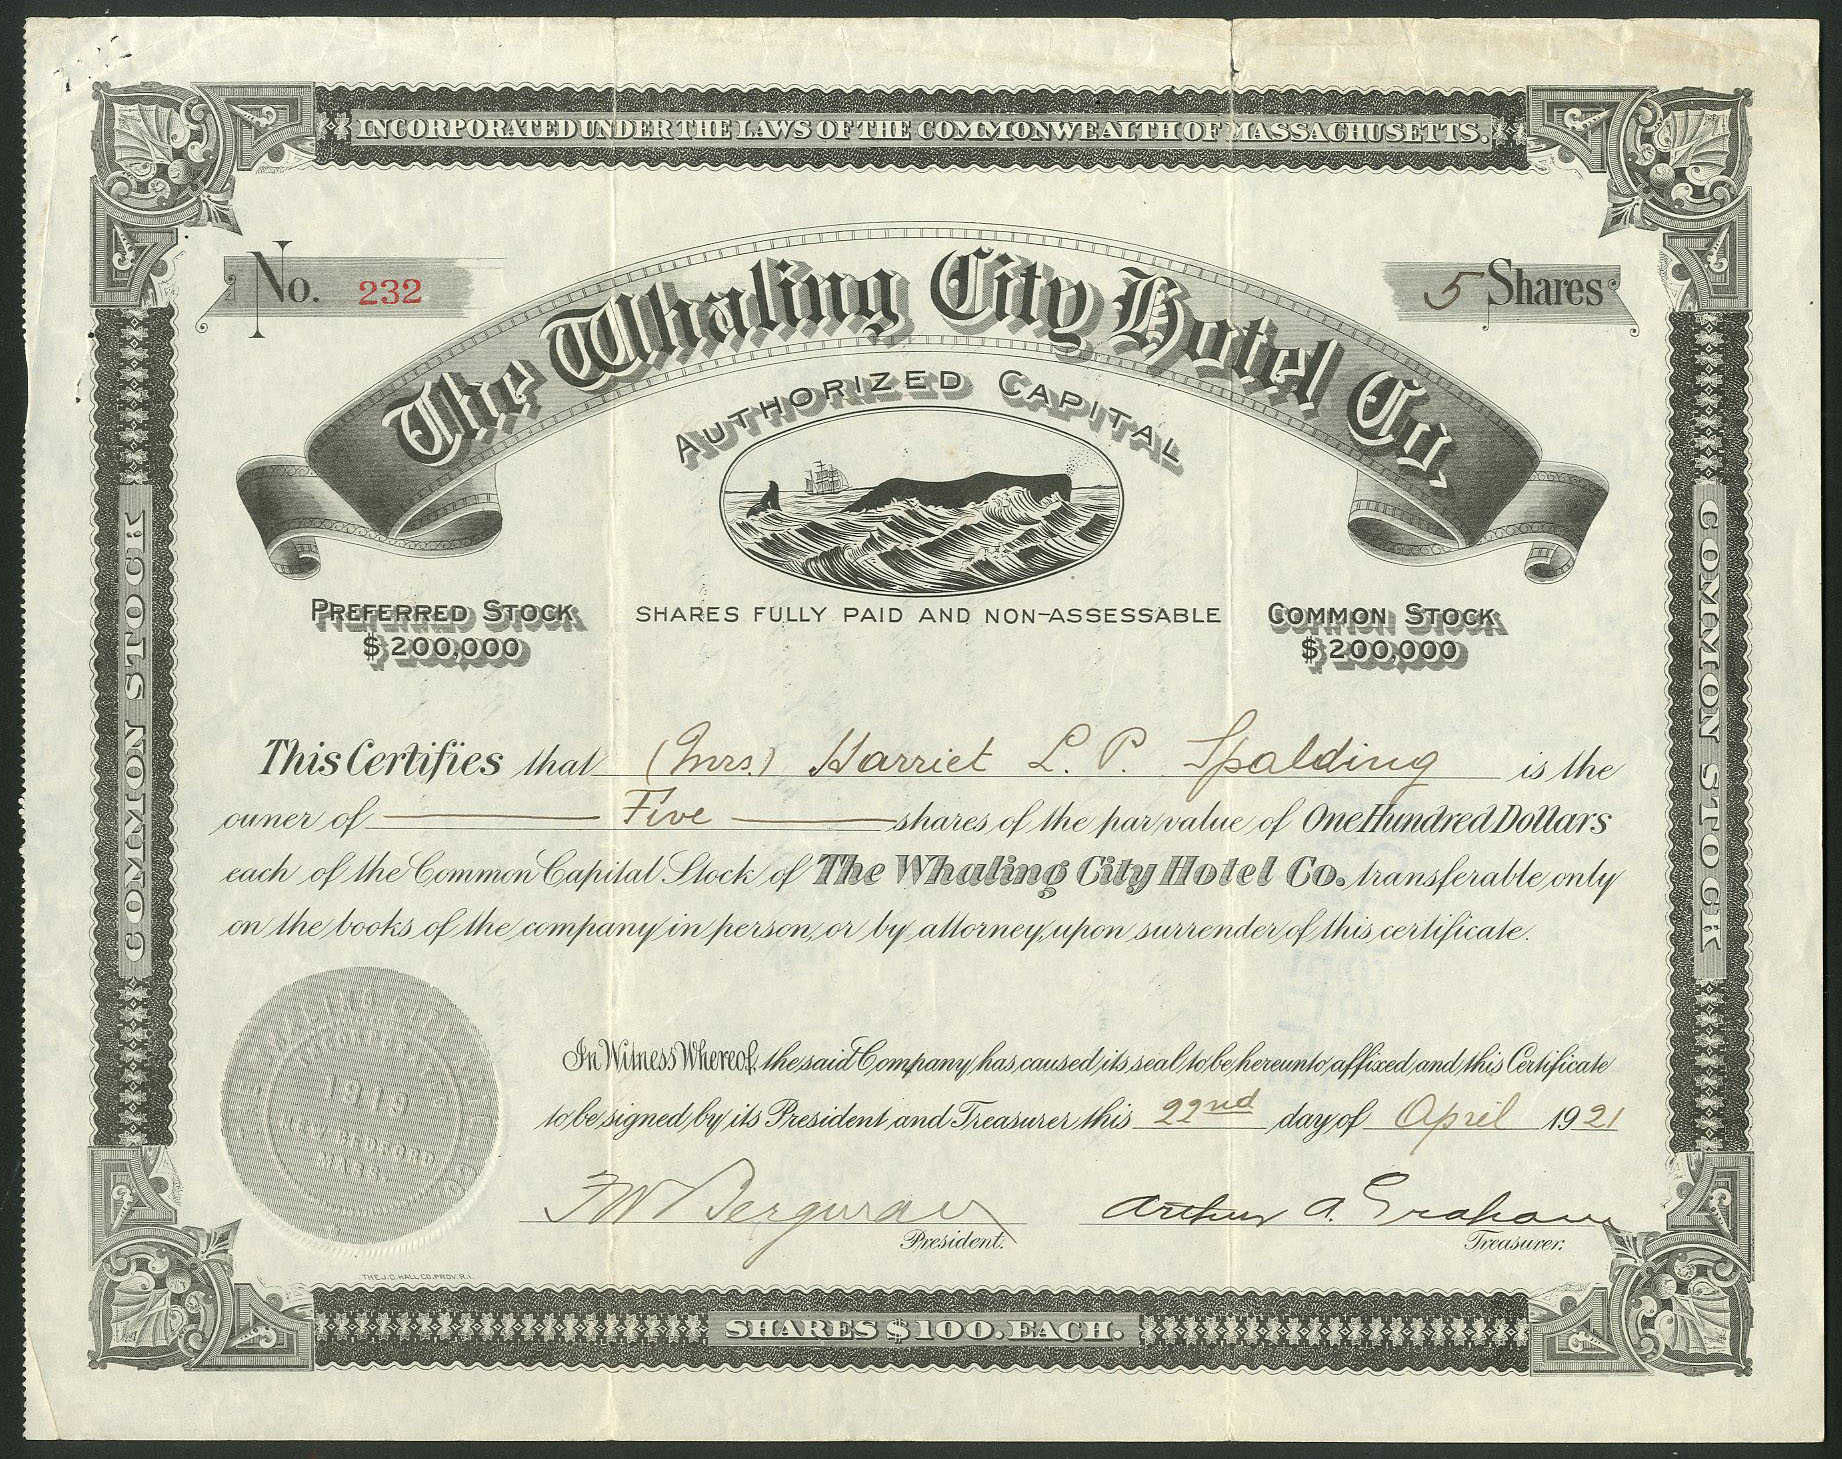 INCORPORATED UNDER THE LAWS OF THE COMMONWEALTH OF MASSACHUSETTS.
No. 232
5 Shares
The Whaling City Hotel Co.
AUTHORIZED CAPITAL
PREFERRED STOCK
$200,000
SHARES FULLY PAID AND NON-ASSESSABLE
COMMON STOCK
$200,000
COMMON STOCK
COMMON STOCK
This Certifies that (Mrs.) Harriet L. P. Spalding is the
owner of Five shares of the par value of One Hundred Dollars
each of the Common Capital Stock of The Whaling City Hotel Co. transferable only
on the books of the company in person, or by attorney, upon surrender of this certificate.
In Witness Whereof, the said Company has caused its seal to be hereunto affixed and this Certificate
to be signed by its President and Treasurer this 22nd day of April 1921
1919
NEW BEDFORD
MASS.
Arthur A. Graham
President.
Treasurer.
THE J.C. HALL CO. PROV. R.I.
SHARES $100. EACH.